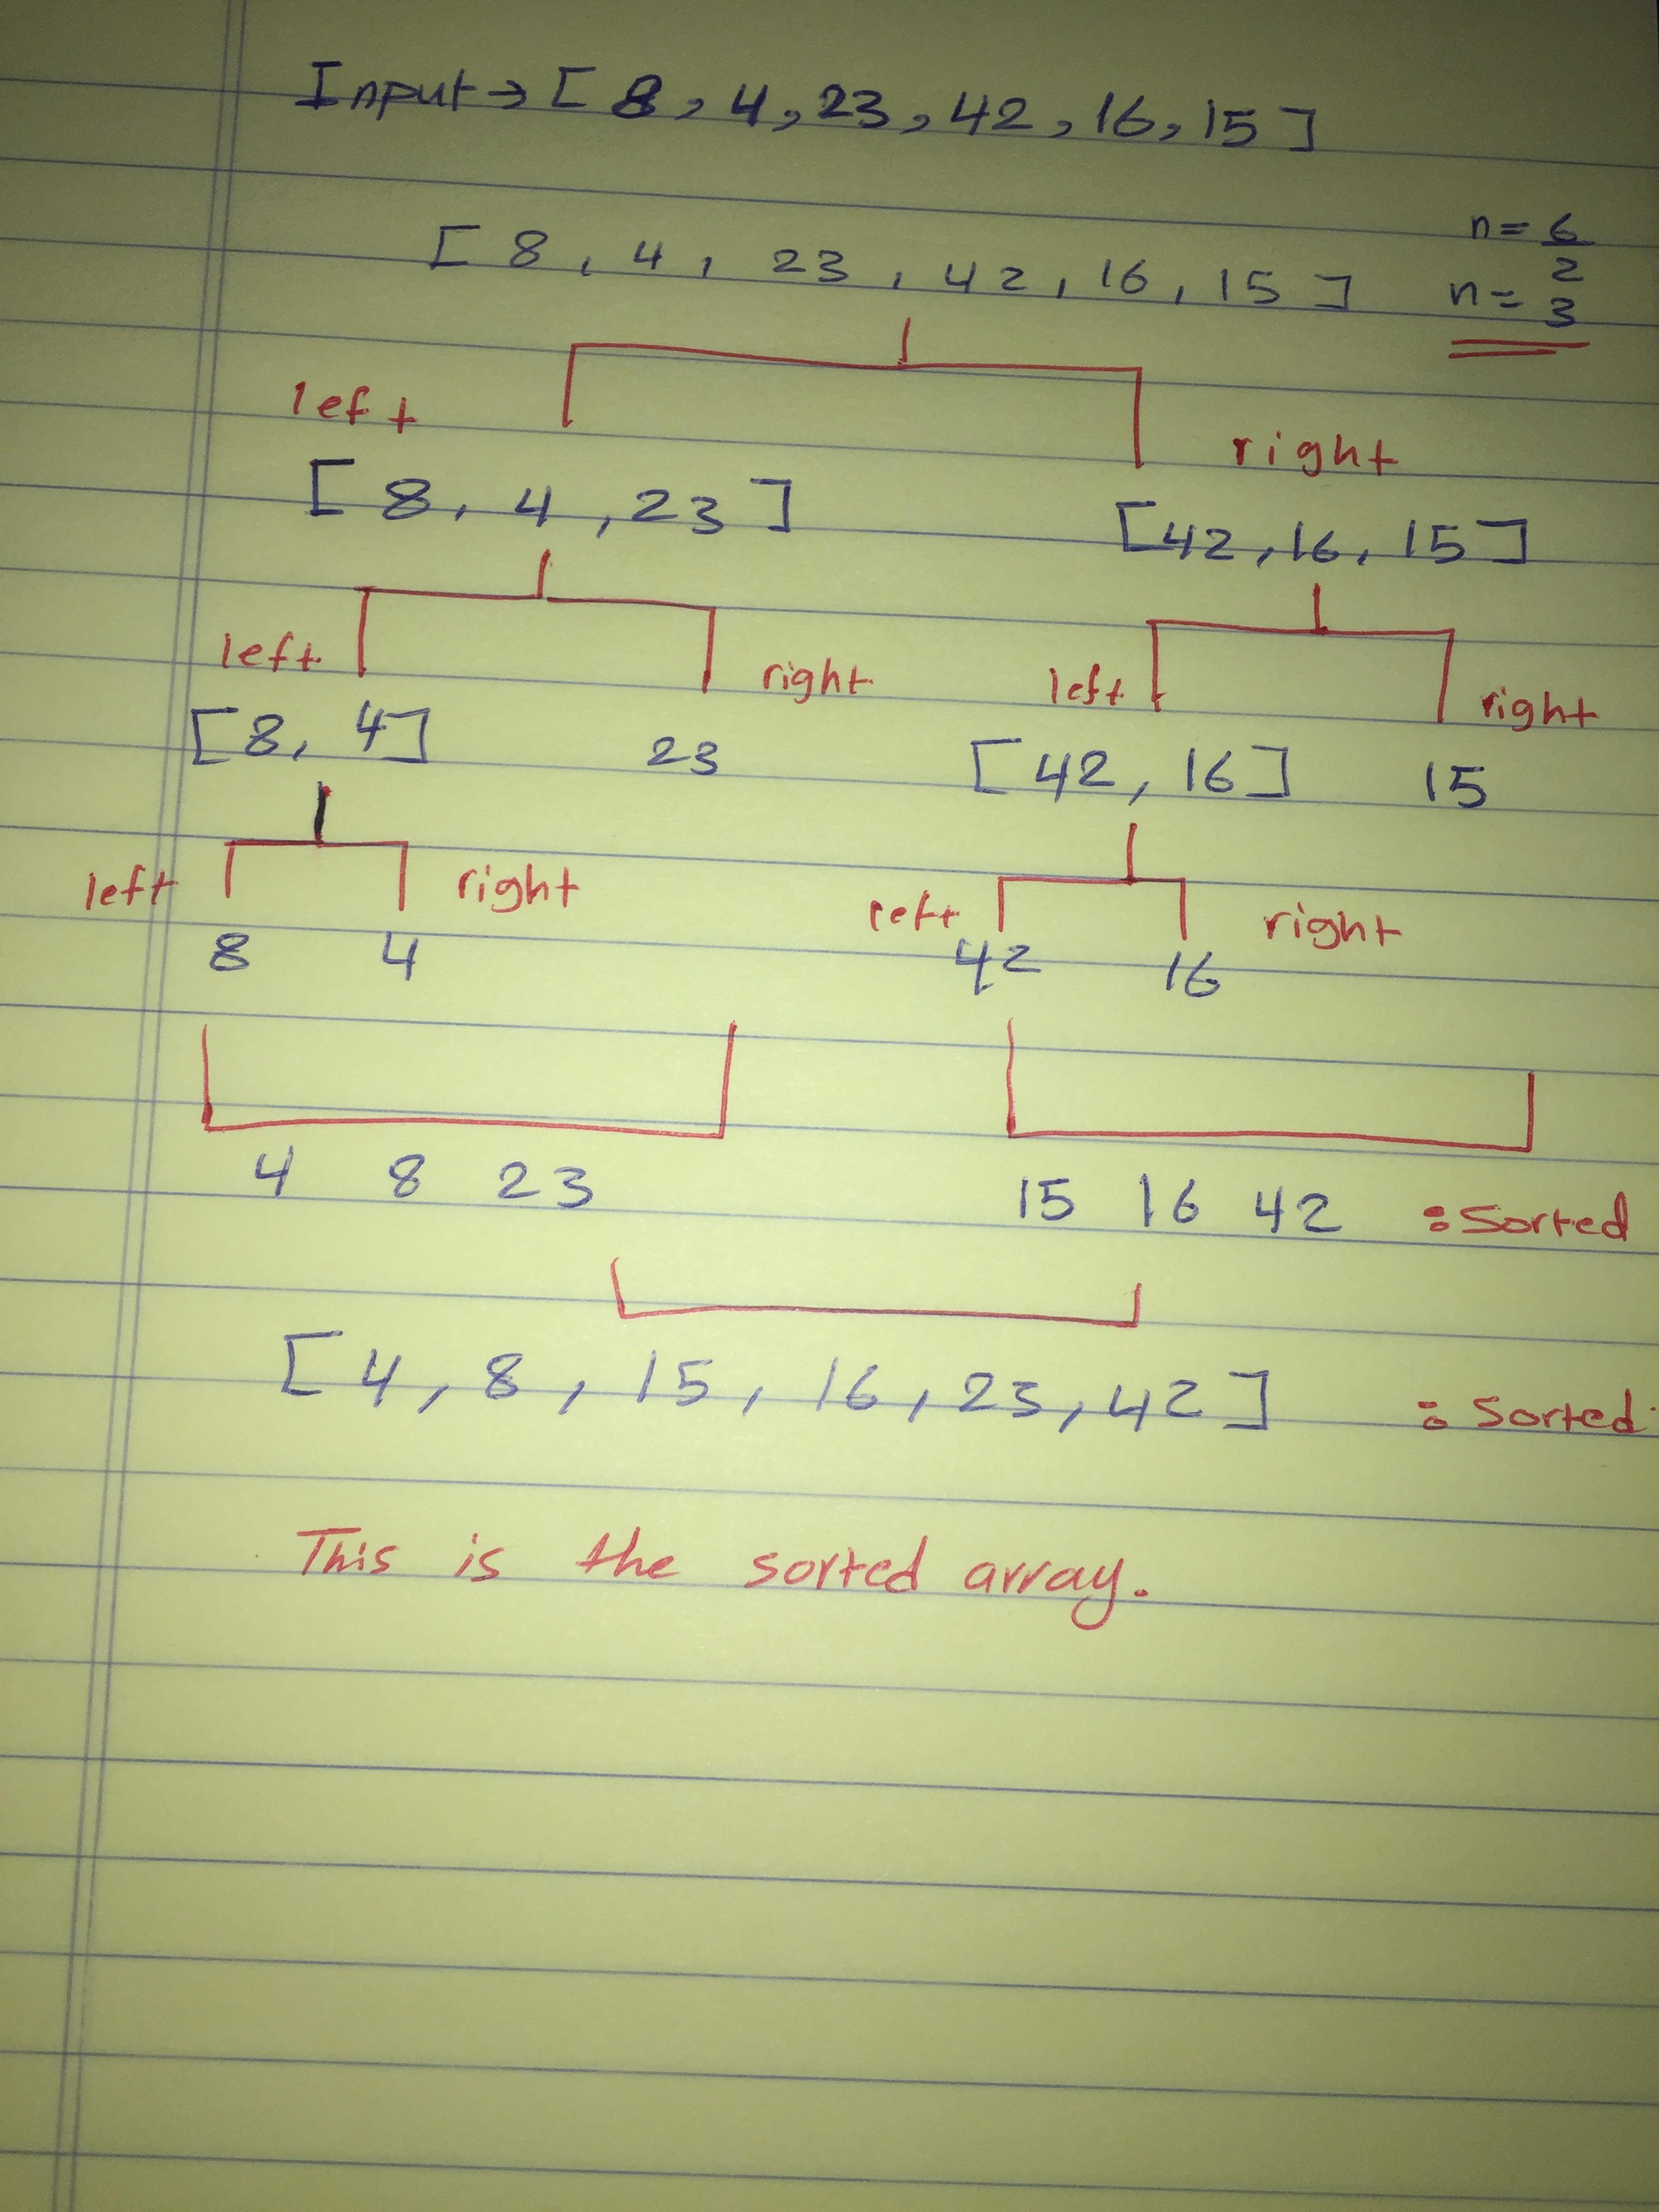 Input → [ 8, 4, 23, 42, 16, 15 ]
[ 8, 4, 23, 42, 16, 15 ]
n = 6/2
n = 3
left right
[ 8, 4, 23 ] [42, 16, 15 ]
left right left right
[8, 4] 23 [42, 16] 15
left right left right
8 4 42 16
4 8 23 15 16 42 : Sorted
[ 4, 8, 15, 16, 23, 42 ] : Sorted
This is the sorted array.